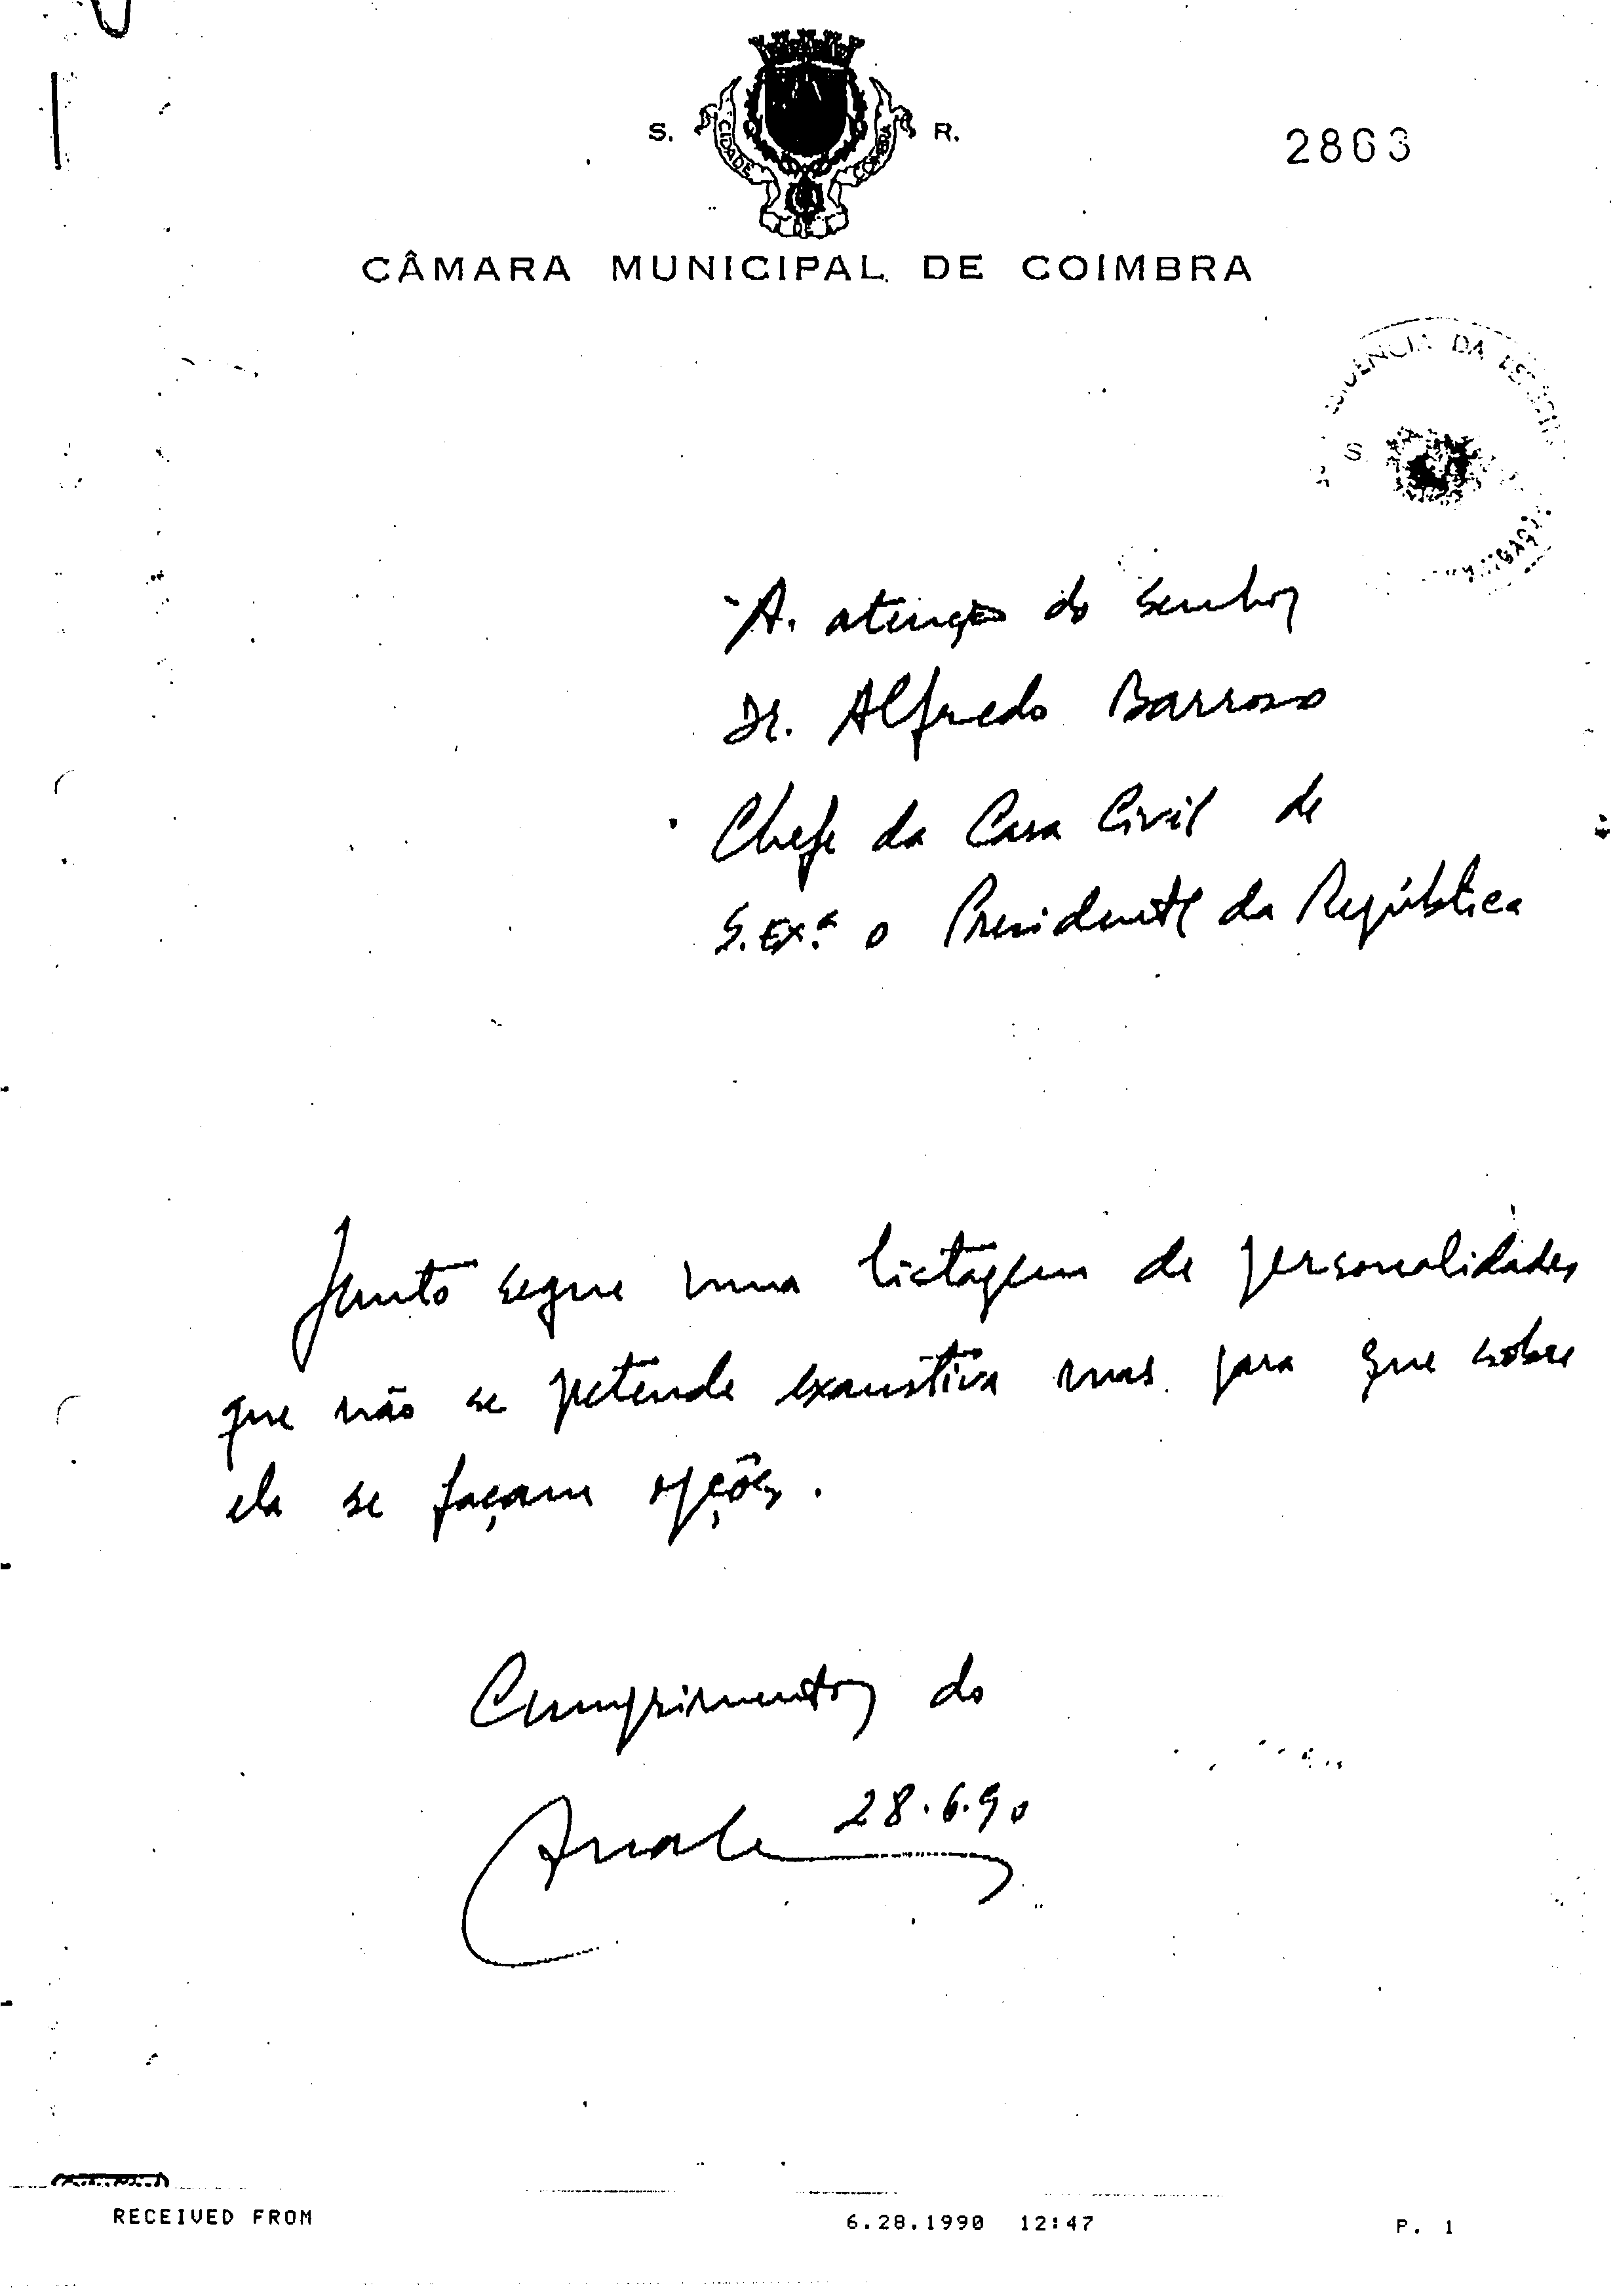 S. R.
CIDADE DE COIMBRA
2863
CÂMARA MUNICIPAL DE COIMBRA
DA
S.
À atenção do Senhor
Dr. Alfredo Barroso
Chefe da Casa Civil de
S. Exª o Presidente da República
Junto segue uma listagem de personalidades
que não se petende exaustiva mas para que sobre
ela se façam opções.
Cumprimentos do
28.6.90
RECEIVED FROM 6.28.1990 12:47 P. 1